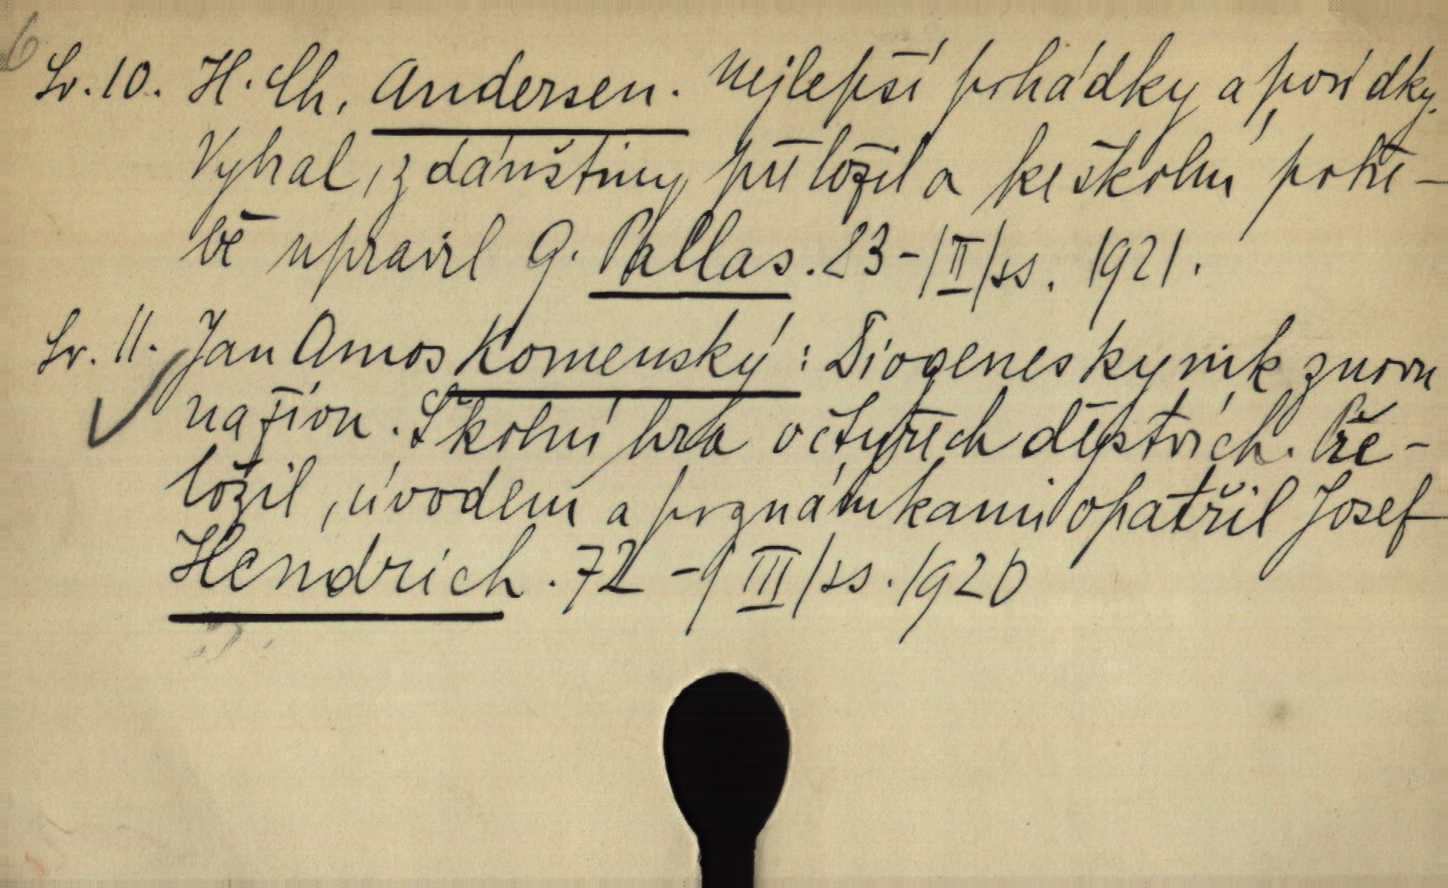 6
Sv. 10. H. Ch. Andersen. Nejlepší pohádky a povídky.
Vybral, z dánštiny přeložil a ke školní potře-
bě upravil G. Pallas. 23-/II/ss. 1921.
Sv. 11. Jan Amos Komenský: Diogenes kynik znovu
naživu. Školní hra o čtyřech dějstvích. Pře-
ložil, úvodem a poznámkami opatřil Josef
Hendrich. 72 -/III/ss. 1920